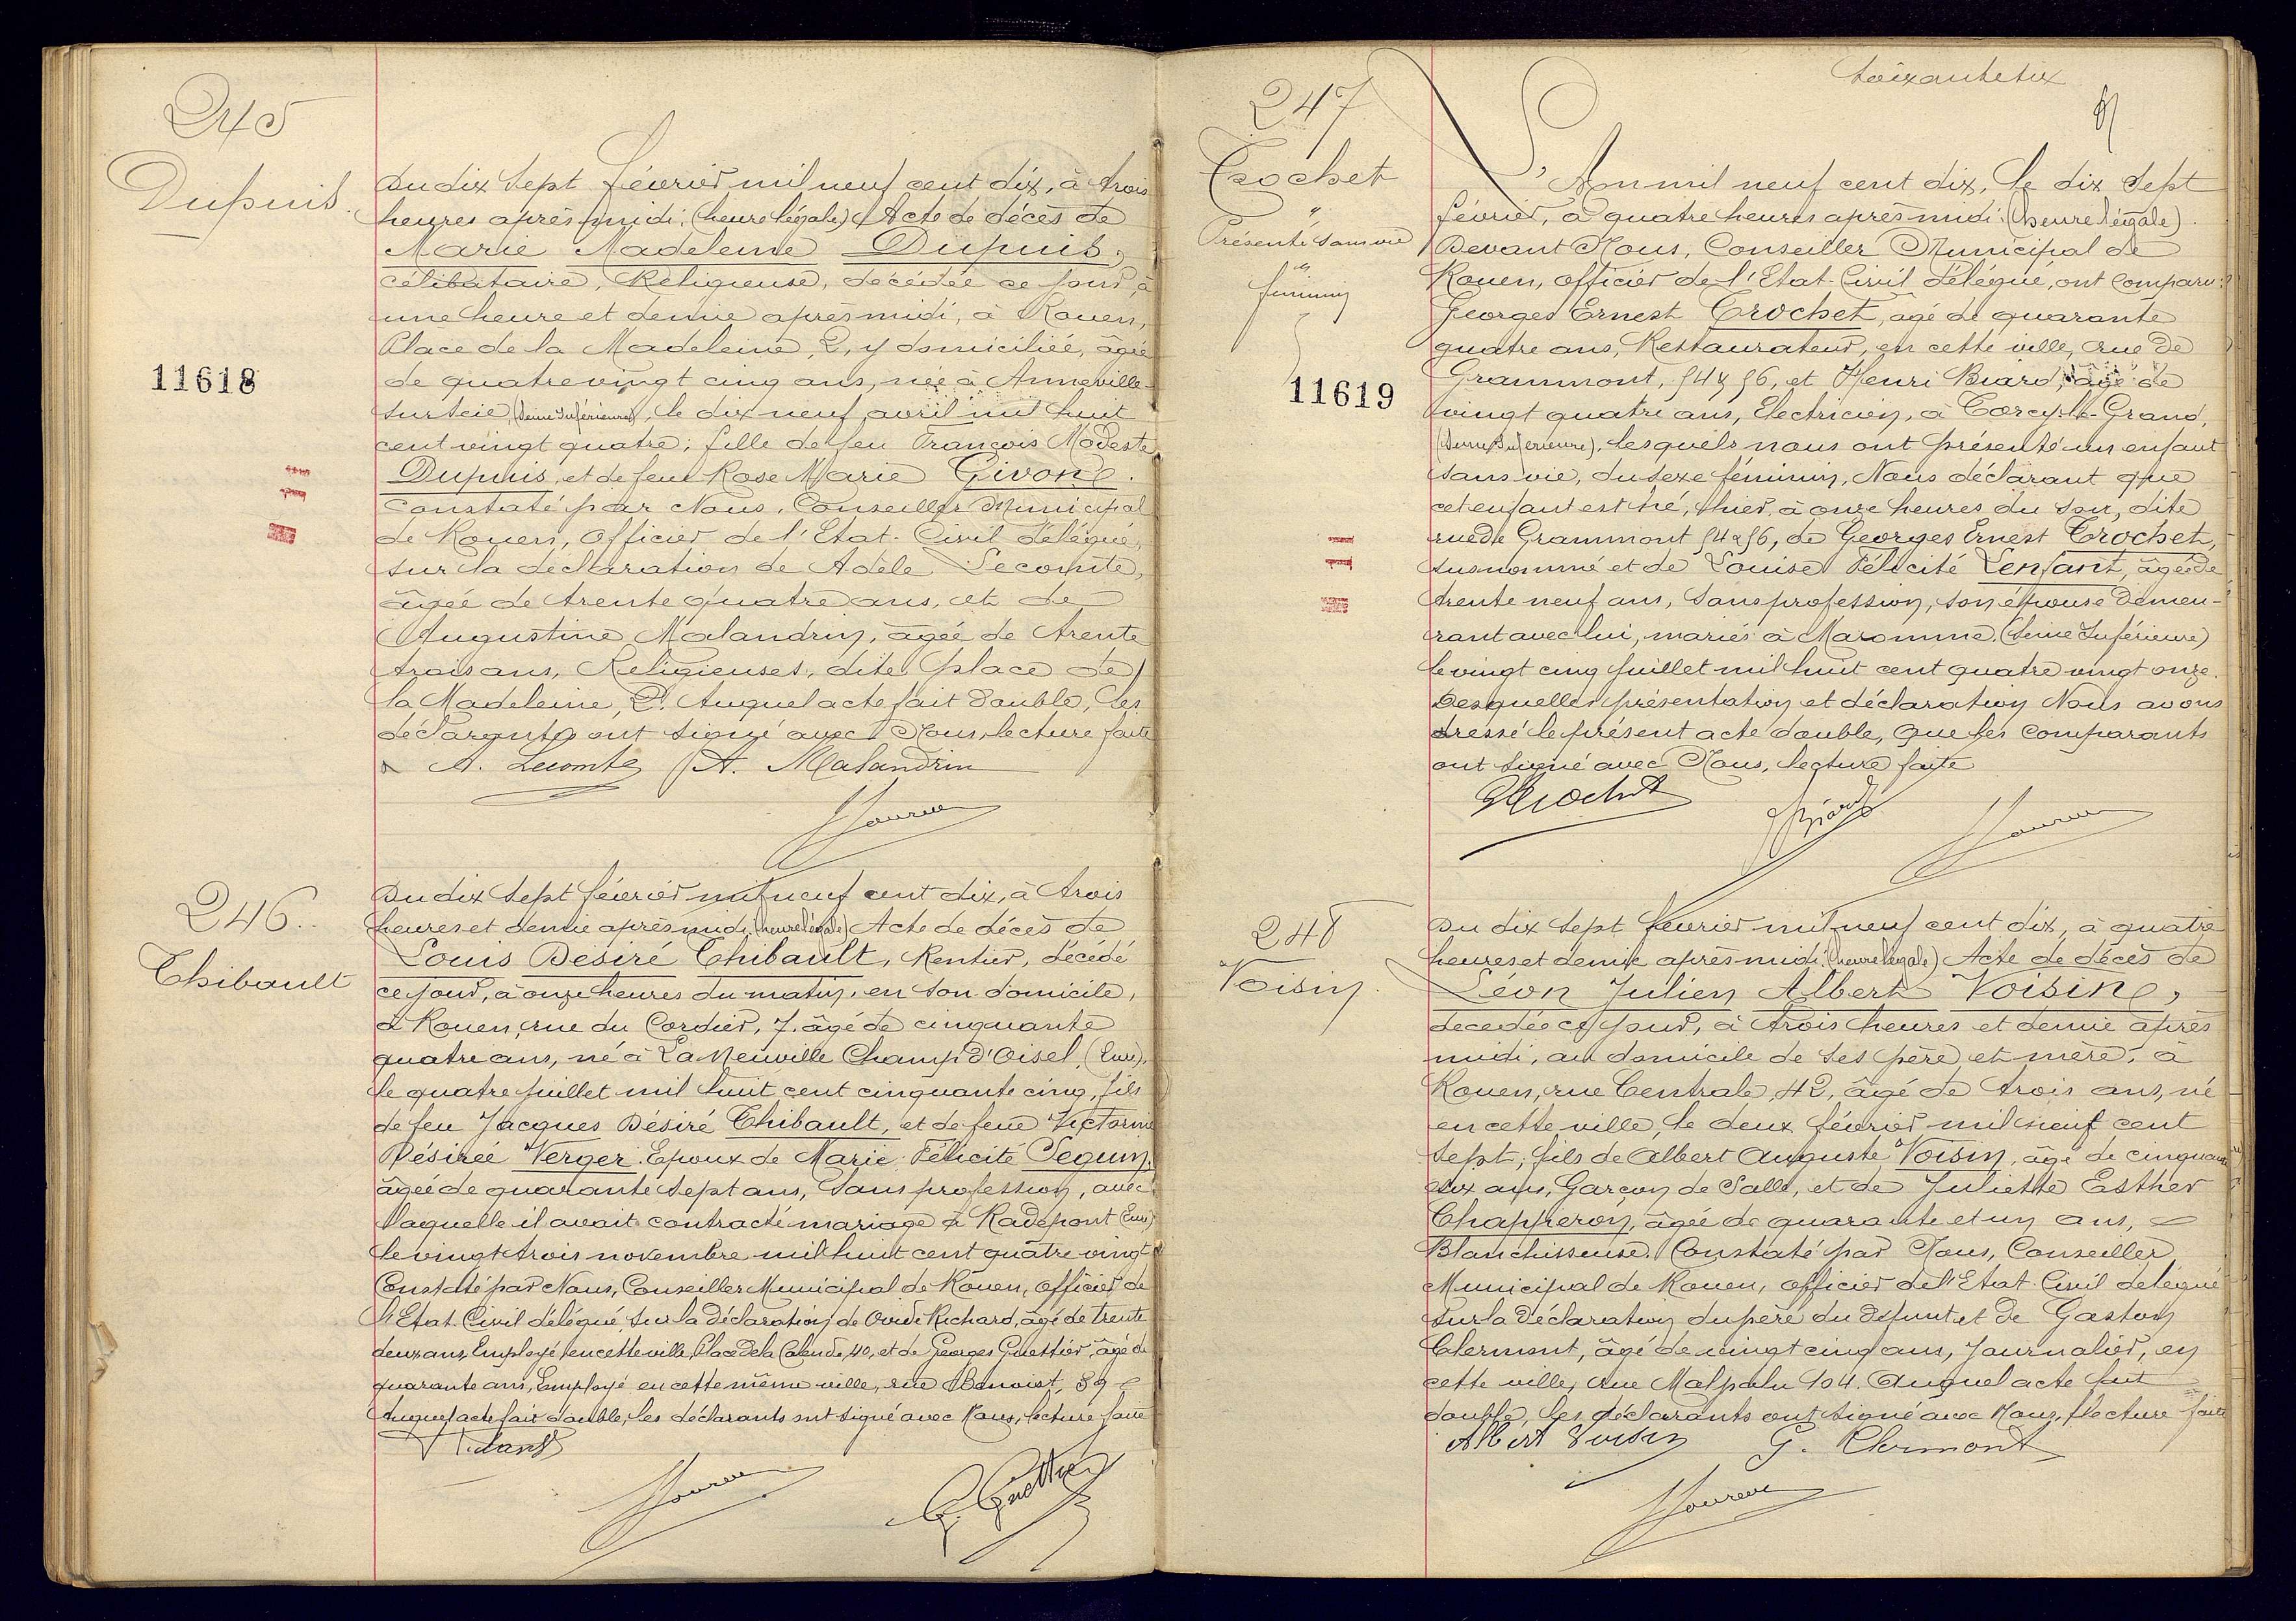 245
Dupuis.
Du dix sept février mil neuf cent dix, à trois
heures après midi, (heure légale) Acte de décès de
Marie Madeleine Dupuis,
célibataire, Religieuse, décédée ce jour, à
une heure et demie après midi, à Rouen,
Place de la Madeleine, 2, y domiciliée, âgée
11618
de quatre vingt cinq ans, née à Anneville
sur Scie, (Seine Inférieure), le dix neuf avril mil huit
cent vingt quatre; fille de feu François Modeste
Dupuis, et de feue Rose Marie Givon.
Constaté par Nous, Conseiller Municipal
de Rouen, Officier de l'Etat-Civil délégué,
sur la déclaration de Adèle Lecomte,
âgée de trente quatre ans, et de
Augustine Malandrin, âgée de trente
trois ans, Religieuses, dite place de
la Madeleine, 2. Auquel acte fait double, les
déclarants ont signé avec Nous, lecture faite
A. Lecomte A. Malandrin
246.
Thibault
Du dix sept février mil neuf cent dix, à trois
heures et demie après midi, (heure légale) Acte de décès de
Louis Désiré Thibault, Rentier, décédé
ce jour, à onze heures du matin, en son domicile,
à Rouen, rue du Cordier, 7, âgé de cinquante
quatre ans, né à La Neuville Champ d'Oisel, (Eure),
le quatre juillet mil huit cent cinquante cinq, fils
de feu Jacques Désiré Thibault, et de feue Victorine
Désirée Verger. Epoux de Marie Félicité Seguin,
âgée de quarante sept ans, sans profession, avec
laquelle il avait contracté mariage à Radepont (Eure)
le vingt trois novembre mil huit cent quatre vingt
Constaté par Nous, Conseiller Municipal de Rouen, Officier de
l'Etat-Civil délégué, sur la déclaration de Ovide Richard, âgé de trente
deux ans, Employé, en cette ville, Place de la Calende, 40, et de Georges Guettier, âgé de
quarante ans, Employé en cette même ville, rue Benoist, 39
Auquel acte fait double, les déclarants ont signé avec Nous, lecture faite
G. Guettier
soixante six
247
Trochet
"
Présenté sans vie
"
féminin
L'An mil neuf cent dix, le dix sept
février, à quatre heures après midi (heure légale).
Devant Nous, Conseiller Municipal de
Rouen, Officier de l'Etat-Civil délégué, ont comparu:
Georges Ernest Trochet, âgé de quarante
quatre ans, Restaurateur, en cette ville, rue de
Grammont, 54 & 56, et Henri Biard, âgé de
11619
vingt quatre ans, Electricien, à Torcy-le-Grand,
(Seine Inférieure), lesquels nous ont présenté un enfant
sans vie, du sexe féminin, Nous déclarant que
cet enfant est né, hier, à onze heures du soir, dite
rue de Grammont 54 & 56, de Georges Ernest Trochet,
susnommé et de Louise Félicité Lenfant, âgée de
trente neuf ans, sans profession, son épouse demeu-
rant avec lui, mariés à Maromme (Seine Inférieure)
le vingt cinq juillet mil huit cent quatre vingt onze.
Desquelles présentation et déclaration Nous avons
dressé le présent acte double, que les comparants
ont signé avec Nous, lecture faite
GTrochet
HBiard
248
Voisin.
Du dix sept février mil neuf cent dix, à quatre
heures et demie après midi, (heure légale) Acte de décès de
Léon Julien Albert Voisin,
décédée ce jour, à trois heures et demie après
midi, au domicile de ses père et mère, à
Rouen, rue Centrale, 42, âgé de trois ans, né
en cette ville, le deux février mil neuf cent
sept; fils de Albert Auguste Voisin, âgé de cinquante
six ans, Garçon de Salle, et de Juliette Esther
Chapperon, âgée de quarante et un ans,
Blanchisseuse. Constaté par Nous, Conseiller
Municipal de Rouen, Officier de l'Etat-Civil délégué
sur la déclaration du père du défunt et de Gaston
Clermont, âgé de vingt cinq ans, Journalier, en
cette ville, rue Malpalu 104. Auquel acte fait
double, les déclarants ont signé avec Nous, lecture faite
Albert Voisin G. Clermont